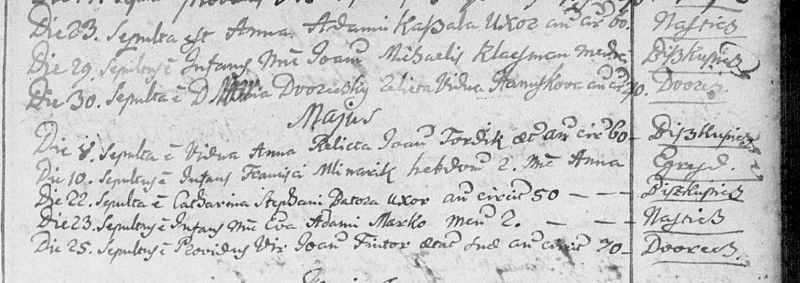 Die 23. Sepulta est Anna Adami Kassala Uxor an cir 60. Nastics
Die 29. Sepultus e Infans nne Joan Michaelis Klacsman Biszkupics
Die 30. Sepulta e D Maria Dvorecsky relicta Vidua an cir 70. Dvorecz
Majus
Die 8. Sepulta e Vidua Anna Relicta Joan Tordik æt an cir 60 - Biszkupics
Die 10. Sepultus e Infans Francisci Mlinarcik hebdom 2. nne Anna
Die 22. Sepulta e Catharina Stephani Batora uxor an circit 50 - - - Biszkupics
Die 23. Sepultus e Infans nne Eva Adami Marko men 2. - - - Nastics
Die 25. Sepultus e Providus Vir Joan ætat suæ an circit 70 - Dvorecz